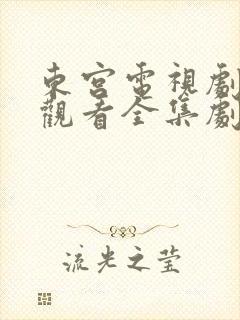 東宮電視劇
觀看全集劇
流光之莹